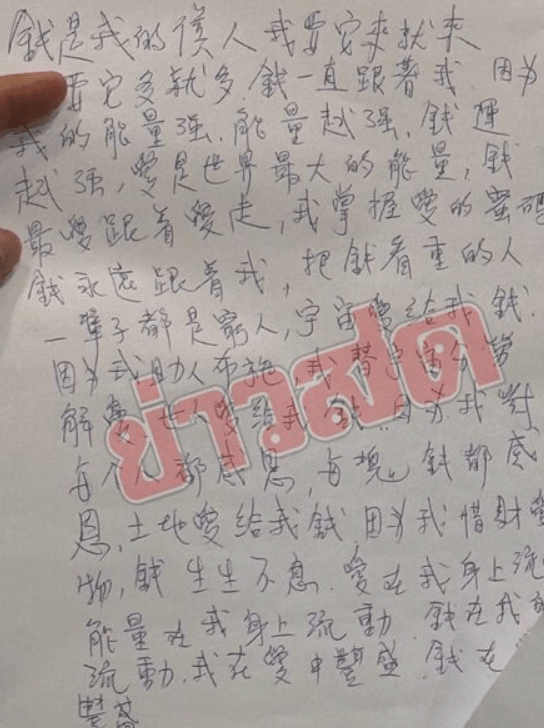 錢是我的僕人我要它來就來
要它多就多錢一直跟著我 因为
我的能量强.能量越强.錢運
越强,愛是世界最大的能量,錢
最愛跟着愛走,我掌握愛的蜜碼
錢永遠跟着我,把錢看重的人
一輩子都是窮人,宇宙愛給我錢.
因为我助人布施,我替宇宙分勞
解憂.世人愛給我錢.因为我對
每个人都感恩,每塊錢都感
恩,土地愛給我錢,因为我惜財愛
物,錢生生不息.愛在我身上流
能量在我身上流動.錢在我
流動.我在愛中豐盛.錢在
豐盛
ข่าวสด